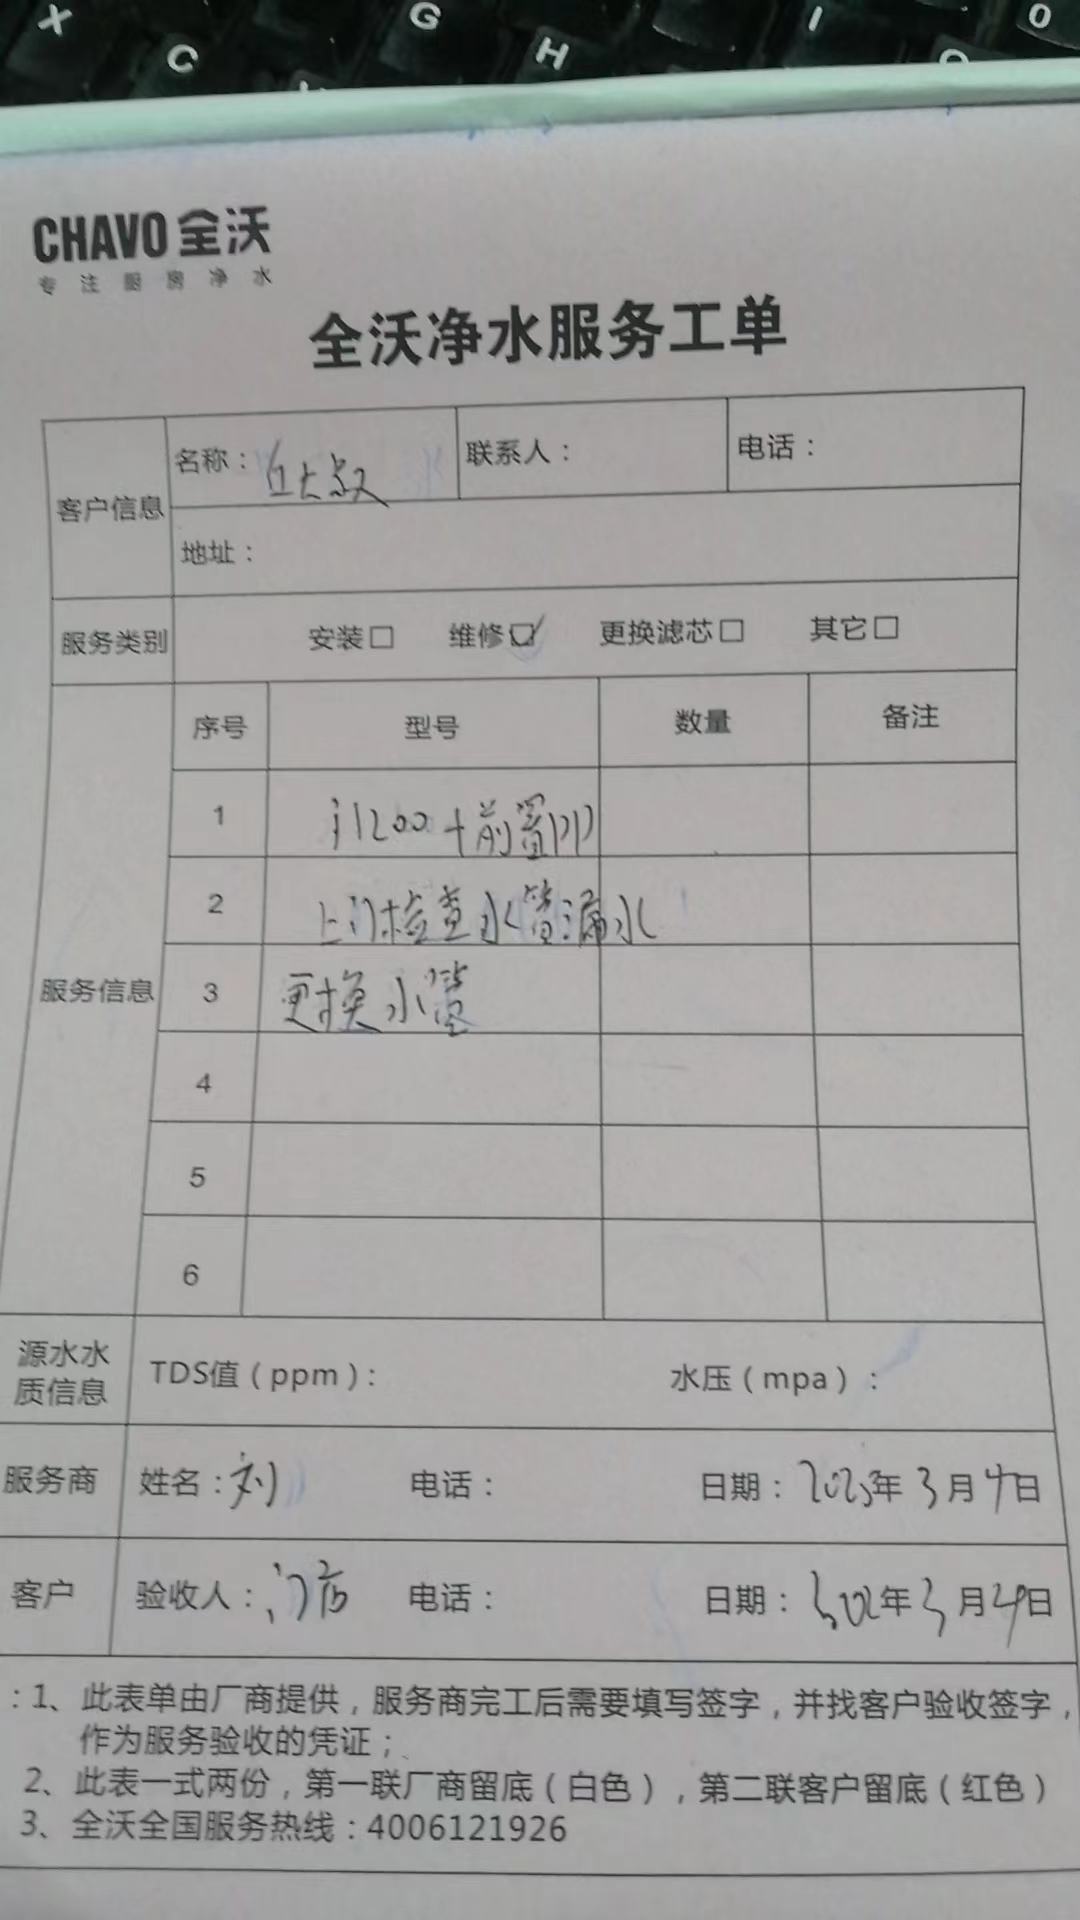 X G I O
C H O
CHAVO 全沃
专注厨房净水
全沃净水服务工单
客户信息 名称： 联系人： 电话：
地址：
服务类别 安装□ 维修☑ 更换滤芯□ 其它□
服务信息 序号 型号 数量 备注
1 1200+前置
2 上门检查水管漏水
3 更换水管
4
5
6
源水水质信息 TDS值（ppm）： 水压（mpa）：
服务商 姓名：刘 电话： 日期：2023年3月4日
客户 验收人：门店 电话： 日期： 年3月4日
：1、此表单由厂商提供，服务商完工后需要填写签字，并找客户验收签字，
作为服务验收的凭证；
2、此表一式两份，第一联厂商留底（白色），第二联客户留底（红色）
3、全沃全国服务热线：4006121926